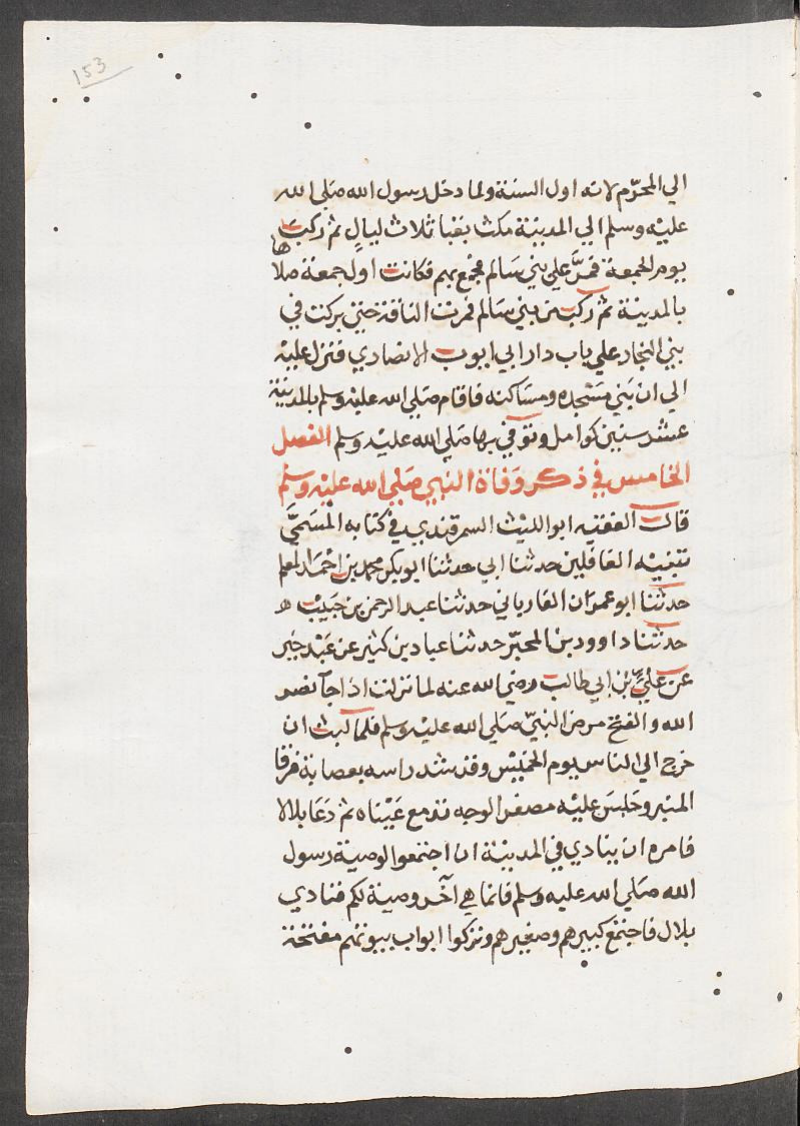 153
الي المحرّم لانه اول السنة ولما دخل رسول الله صَلي الله
عليْه وسلم الي المدينة مكث بقبا ثلاث ليالٍ ثم ركب
يوم الجمعة فمرَّ علي بني سَالم فجمع بهم فكانت اول جمعة صلاها
بالمدينة ثم ركب من بني سَالم فمرت الناقة حتي بركت في
بني النجار علي باب دار ابي ايوب الانصاري فنزل عليْه
الي ان بَني مسْجده ومسَاكنه فاقام صَلي الله عليْه وسلم بالمدينة
عشر سنين كوامل وتوفي بها صَلي الله عليْه وسلم الفصل
الخامس في ذكر وفاة النبي صَلي الله عليْه وسلم
قال الفقيه ابو الليْث السمرقندي في كتابه المْسَمَّي
تنبيْه الغافلين حدثنا ابي حدثنا ابو بكر محمد بن احْمَد المعلم
حدثنا ابو عمران الفارياني حدثنا عبد الرحمن بن حَبيْب ه
حدثنا داوود بن المحبّر حدثنا عباد بن كثير عن عَبْد خير
عن عَليِّ بْن ابي طالب رضي الله عنه لما نزلت اذا جآ نصر
الله والفتح مرض النبيّ صَلي الله عليْه وسلم فلما لبث ان
خرج الي الناس يوم الخميْس وقد شد راسه بعصابة فرقا
المنبر وجَلسَ عليْه مصفر الوجه تدمع عَيْناه ثم دَعَا بلالا
فامره ان ينادي في المدينة ان اجتمعوا لوصية رسول
الله صَلي الله عليه وسلم فانما هي آخر وصية لكم فنادي
بلال فاجتمع كبيرهم وصغيرهم وتركوا ابواب بيوتهم مفتحة